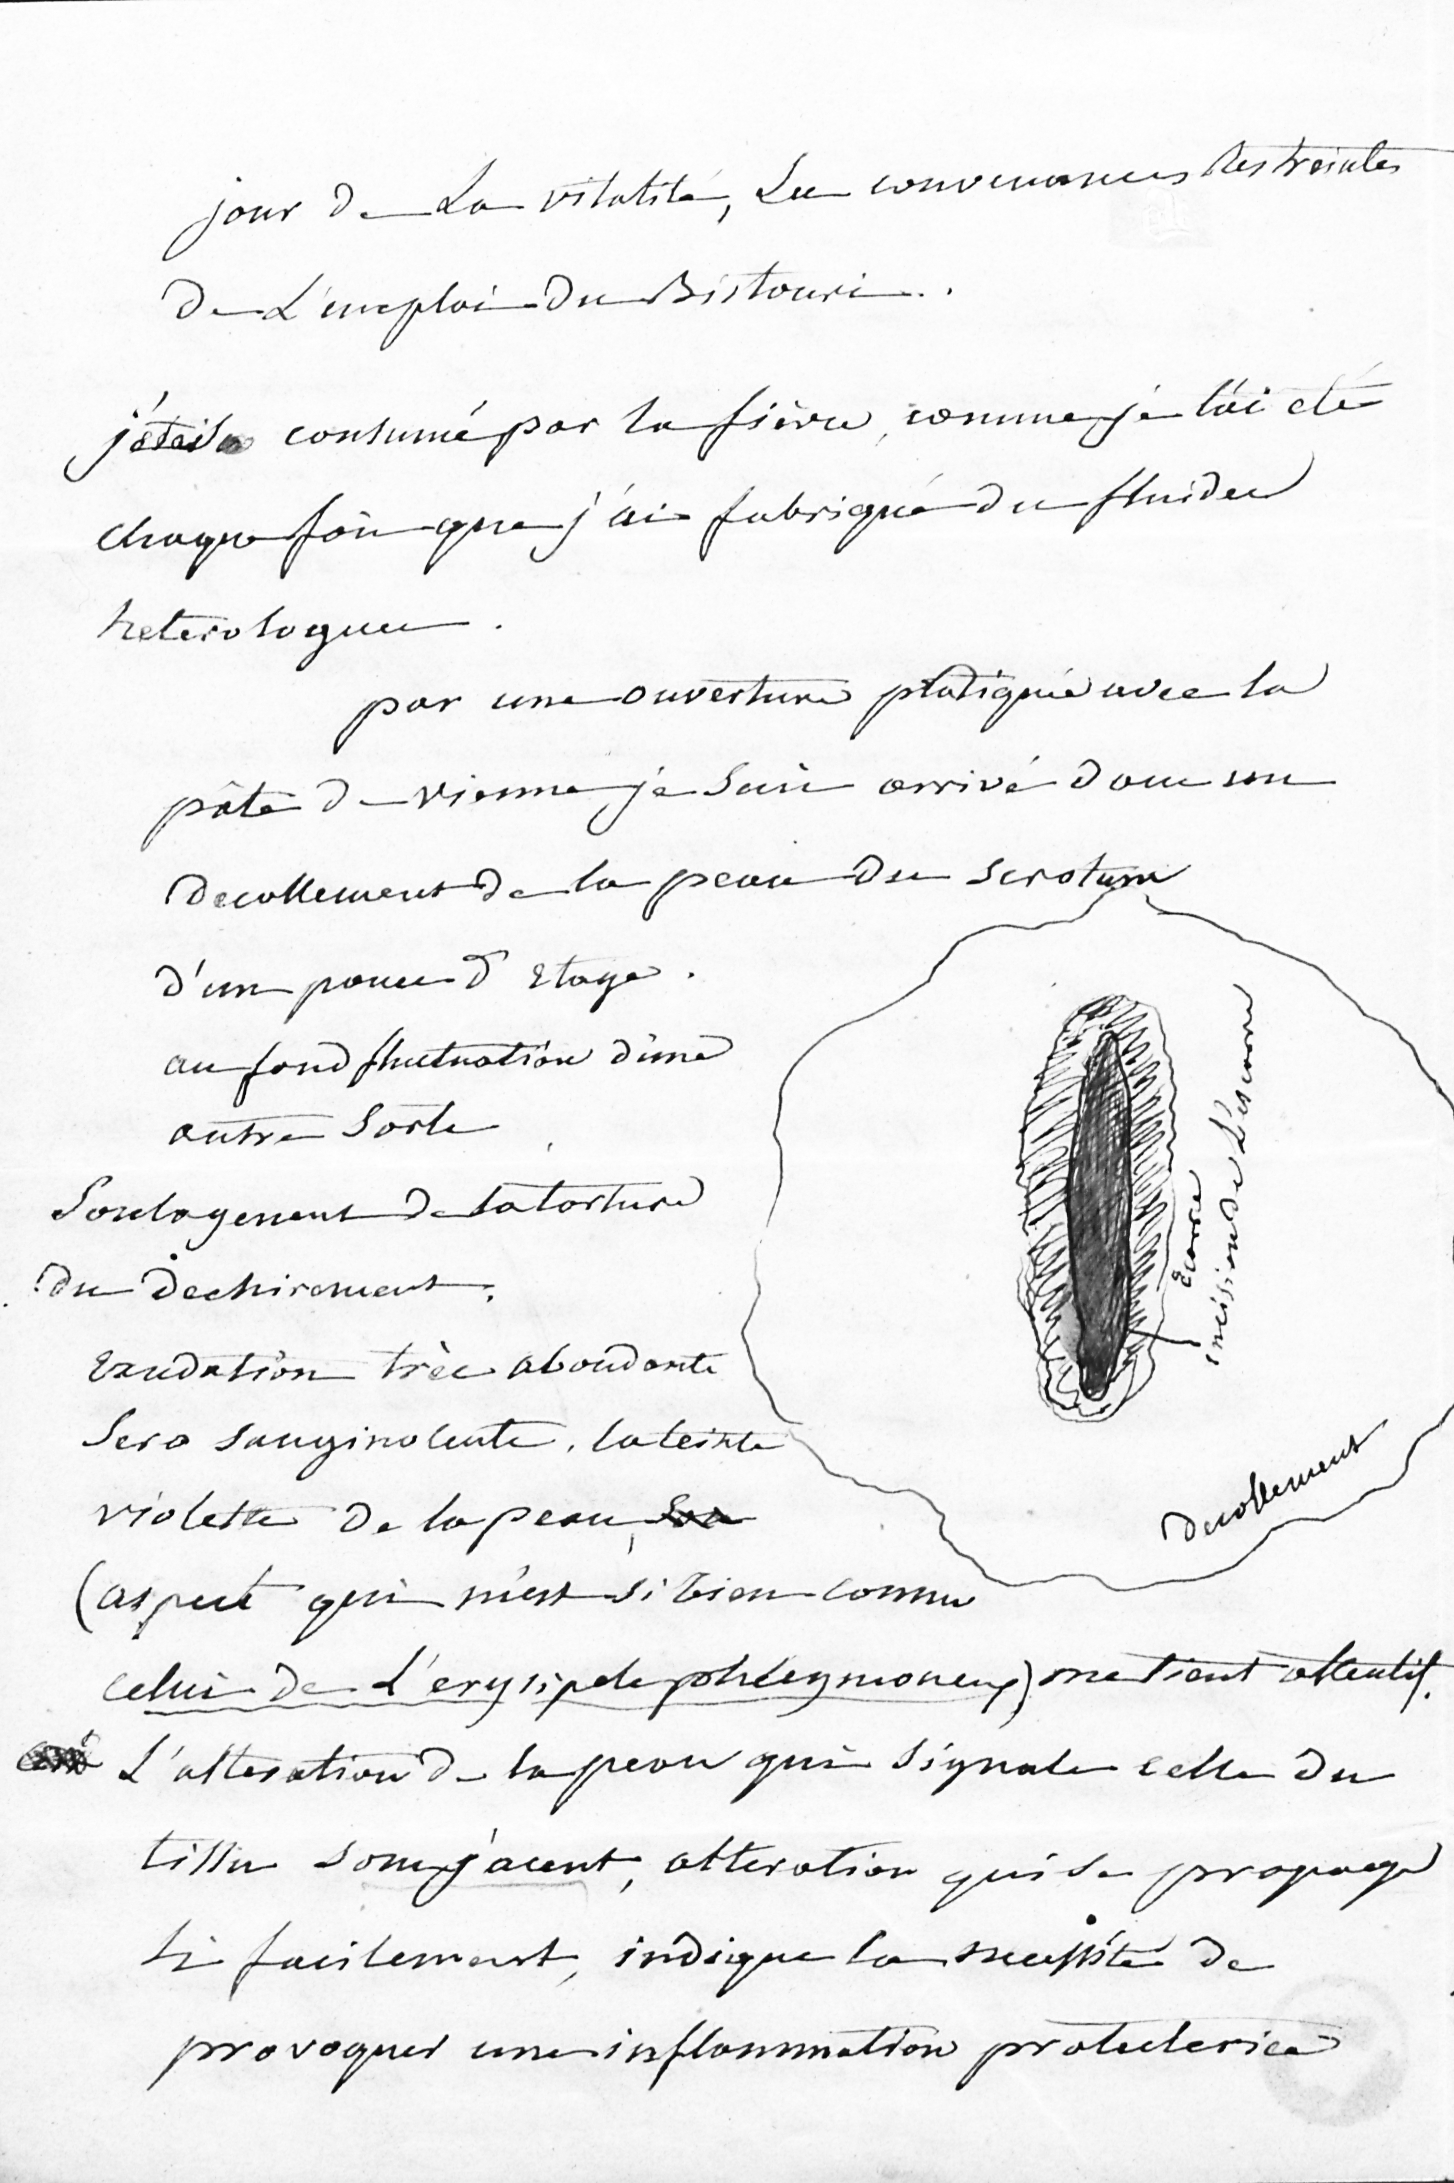 jour de La vitalité, Les convenances restreintes
de L'emploi du Bistouri.
j'étais consumé par la fièvre, comme je l'ai été
chaque fois que j'ai fabriqué des fluides
heterologues.
par une ouverture pratiquée avec la
pâte de vienne je suis arrivé dans un
decollement de la peau du scrotum
d'un pouce d'etage.
au fond fluctuation d'une
autre sorte
Soulagement de la torture
du dechirement.
Exudation très abondante
Sero sanguinolente. la teinte
violette de la peau,
(aspect qui m'est si bien connu
celui de L'erysipele phlegmoneux) me tient attentif.
L'alteration de la peau qui signale celle du
tissu sous jacent, alteration qui se propage
si facilement, indique la necessité de
provoquer une inflammation protectrice
Escarre
incision de L'escarre
Decollement